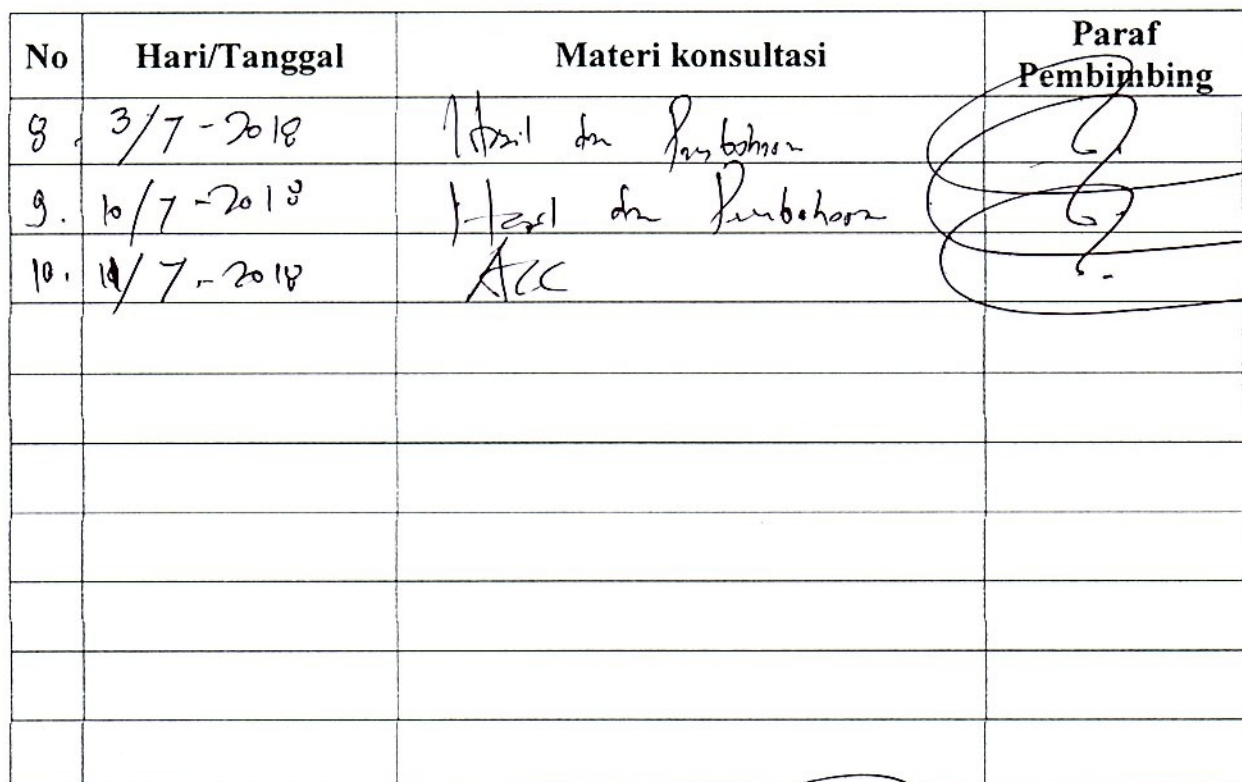 No Hari/Tanggal Materi konsultasi Paraf Pembimbing
8. 3/7-2018 Hasil dan Pembahasan
9. 10/7-2018 Hasil dan Pembahasan
10. 11/7-2018 ACC